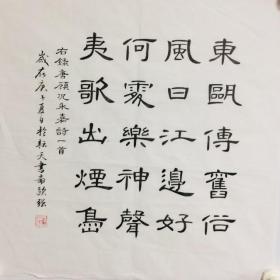 東甌傳舊俗
風日江邊好
何處樂神聲
夷歌出煙島
右錄唐顧況永嘉詩一首
歲在庚子夏日於耘天書齋